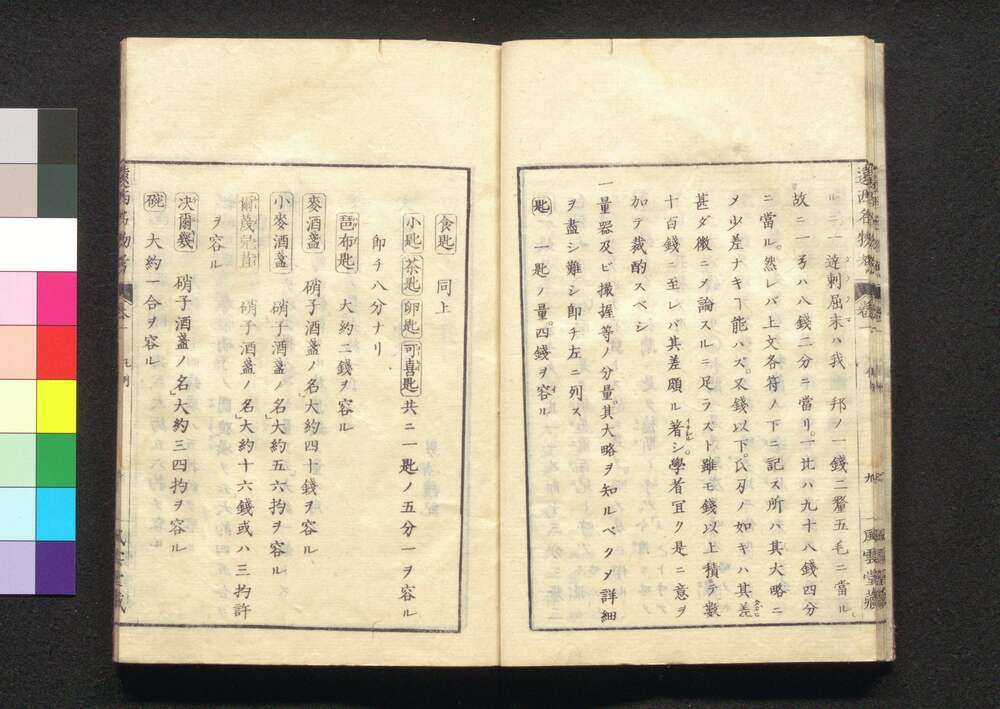 ルニ一達剌屈末ハ我 邦ノ一錢二釐五毛ニ當ル
故ニ一ヲハ八錢二分ニ當リ。一比ハ九十八錢四分
ニ當ル。然レバ上文各符ノ下ニ記ス所ハ其大略ニ
メ少差ナキヿ能ハズ。又錢以下。氏刃ノ如キハ其差
甚ダ微ニメ論スルニ足ラスト雖モ錢以上積テ數
十百錢ニ至レバ其差頗ル著シ。學者冝ク是ニ意ヲ
加テ裁酌スベシ
一量器及ビ撮握等ノ分量。其大略ヲ知ルベクメ詳細
ヲ盡シ難シ即チ左ニ列ス
匙 一匙ノ量。四錢ヲ容ル
遠西名物考 卷一 凡例 九 風雲堂藏
食匙 同上
小匙 茶匙 卵匙 可喜匙 共ニ一匙ノ五分一ヲ容ル
即チ八分ナリ
琶布匙 大約二錢ヲ容ル
麥酒盞 硝子酒盞ノ名」大約四十錢ヲ容ル
小麥酒盞 硝子酒盞ノ名」大約五六扚ヲ容ル
硝子酒盞ノ名」大約十六錢或ハ三扚許
ヲ容ル
决爾幾 硝子酒盞ノ名」大約三四扚ヲ容ル
碗 大約一合ヲ容ル